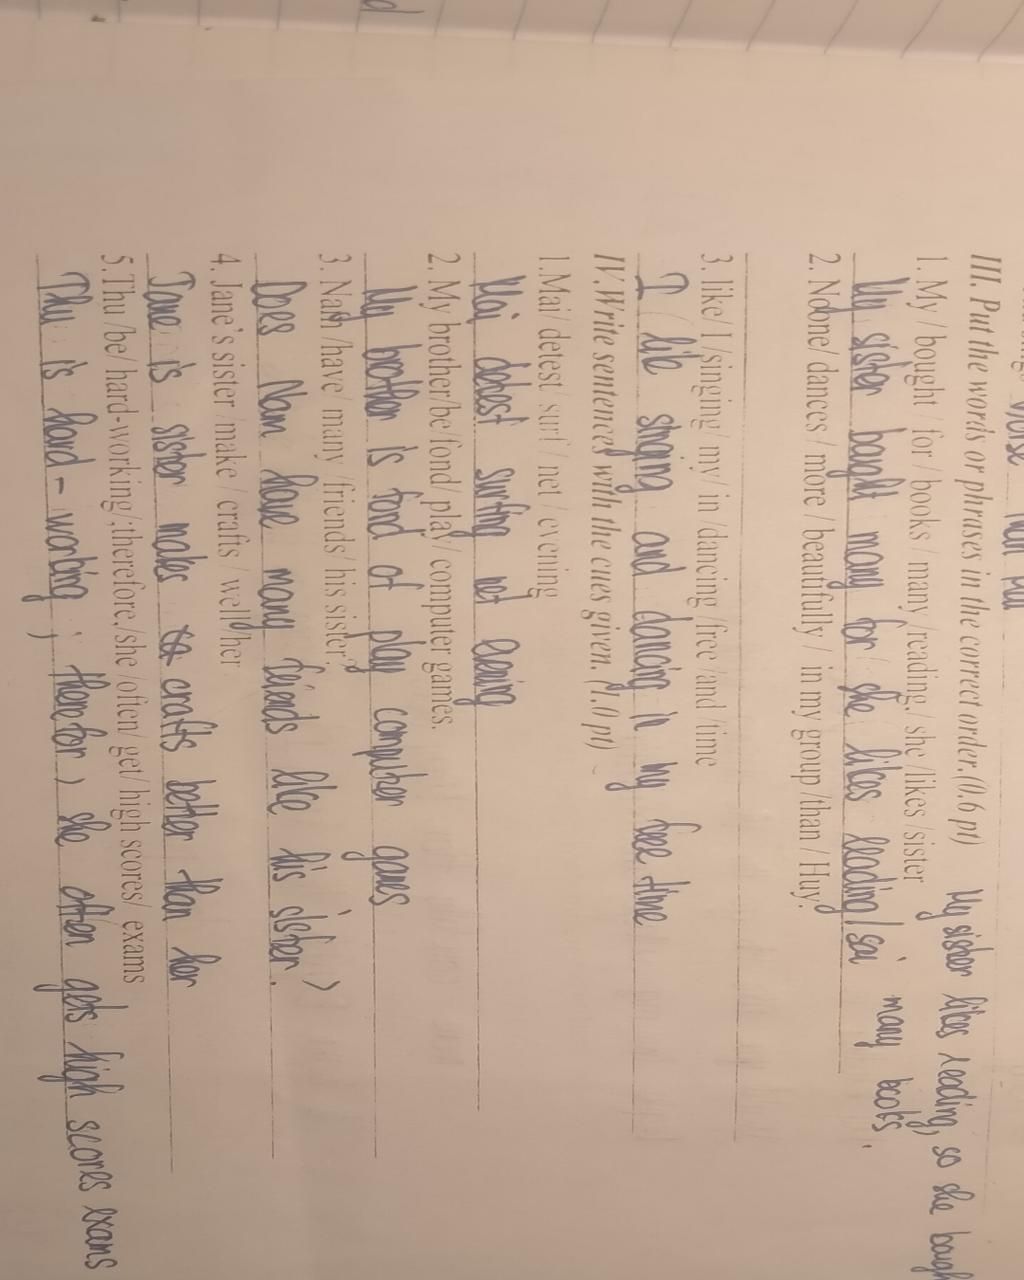 III. Put the words or phrases in the correct order.(0.6 pt)
My sister likes reading, so she
1. My / bought / for / books / many / reading. / she / likes / sister
many books.
My sister bought many for she likes reading / sai
2. No one/ dances / more / beautifully / in my group / than / Huy.
3. like/ I / singing/ my / in /dancing /free /and /time
I like singing and dancing in my free time
IV.Write sentences with the cues given. (1.0 pt)
1.Mai/ detest/ surf / net / evening
Mai detest surfing net evening
2. My brother/be/fond/ play/ computer games.
My brother is fond of play computer games
3. Nam /have/ many /friends/ his sister?
Does Nam have many friends like his sister.
4. Jane's sister /make / crafts / well/ her
Jane is sister makes crafts better than her
5.Thu /be/ hard-working/;therefore,/she /often/ get/ high scores/ exams
Thu is hard-working ; therefor, she often gets high scores exams